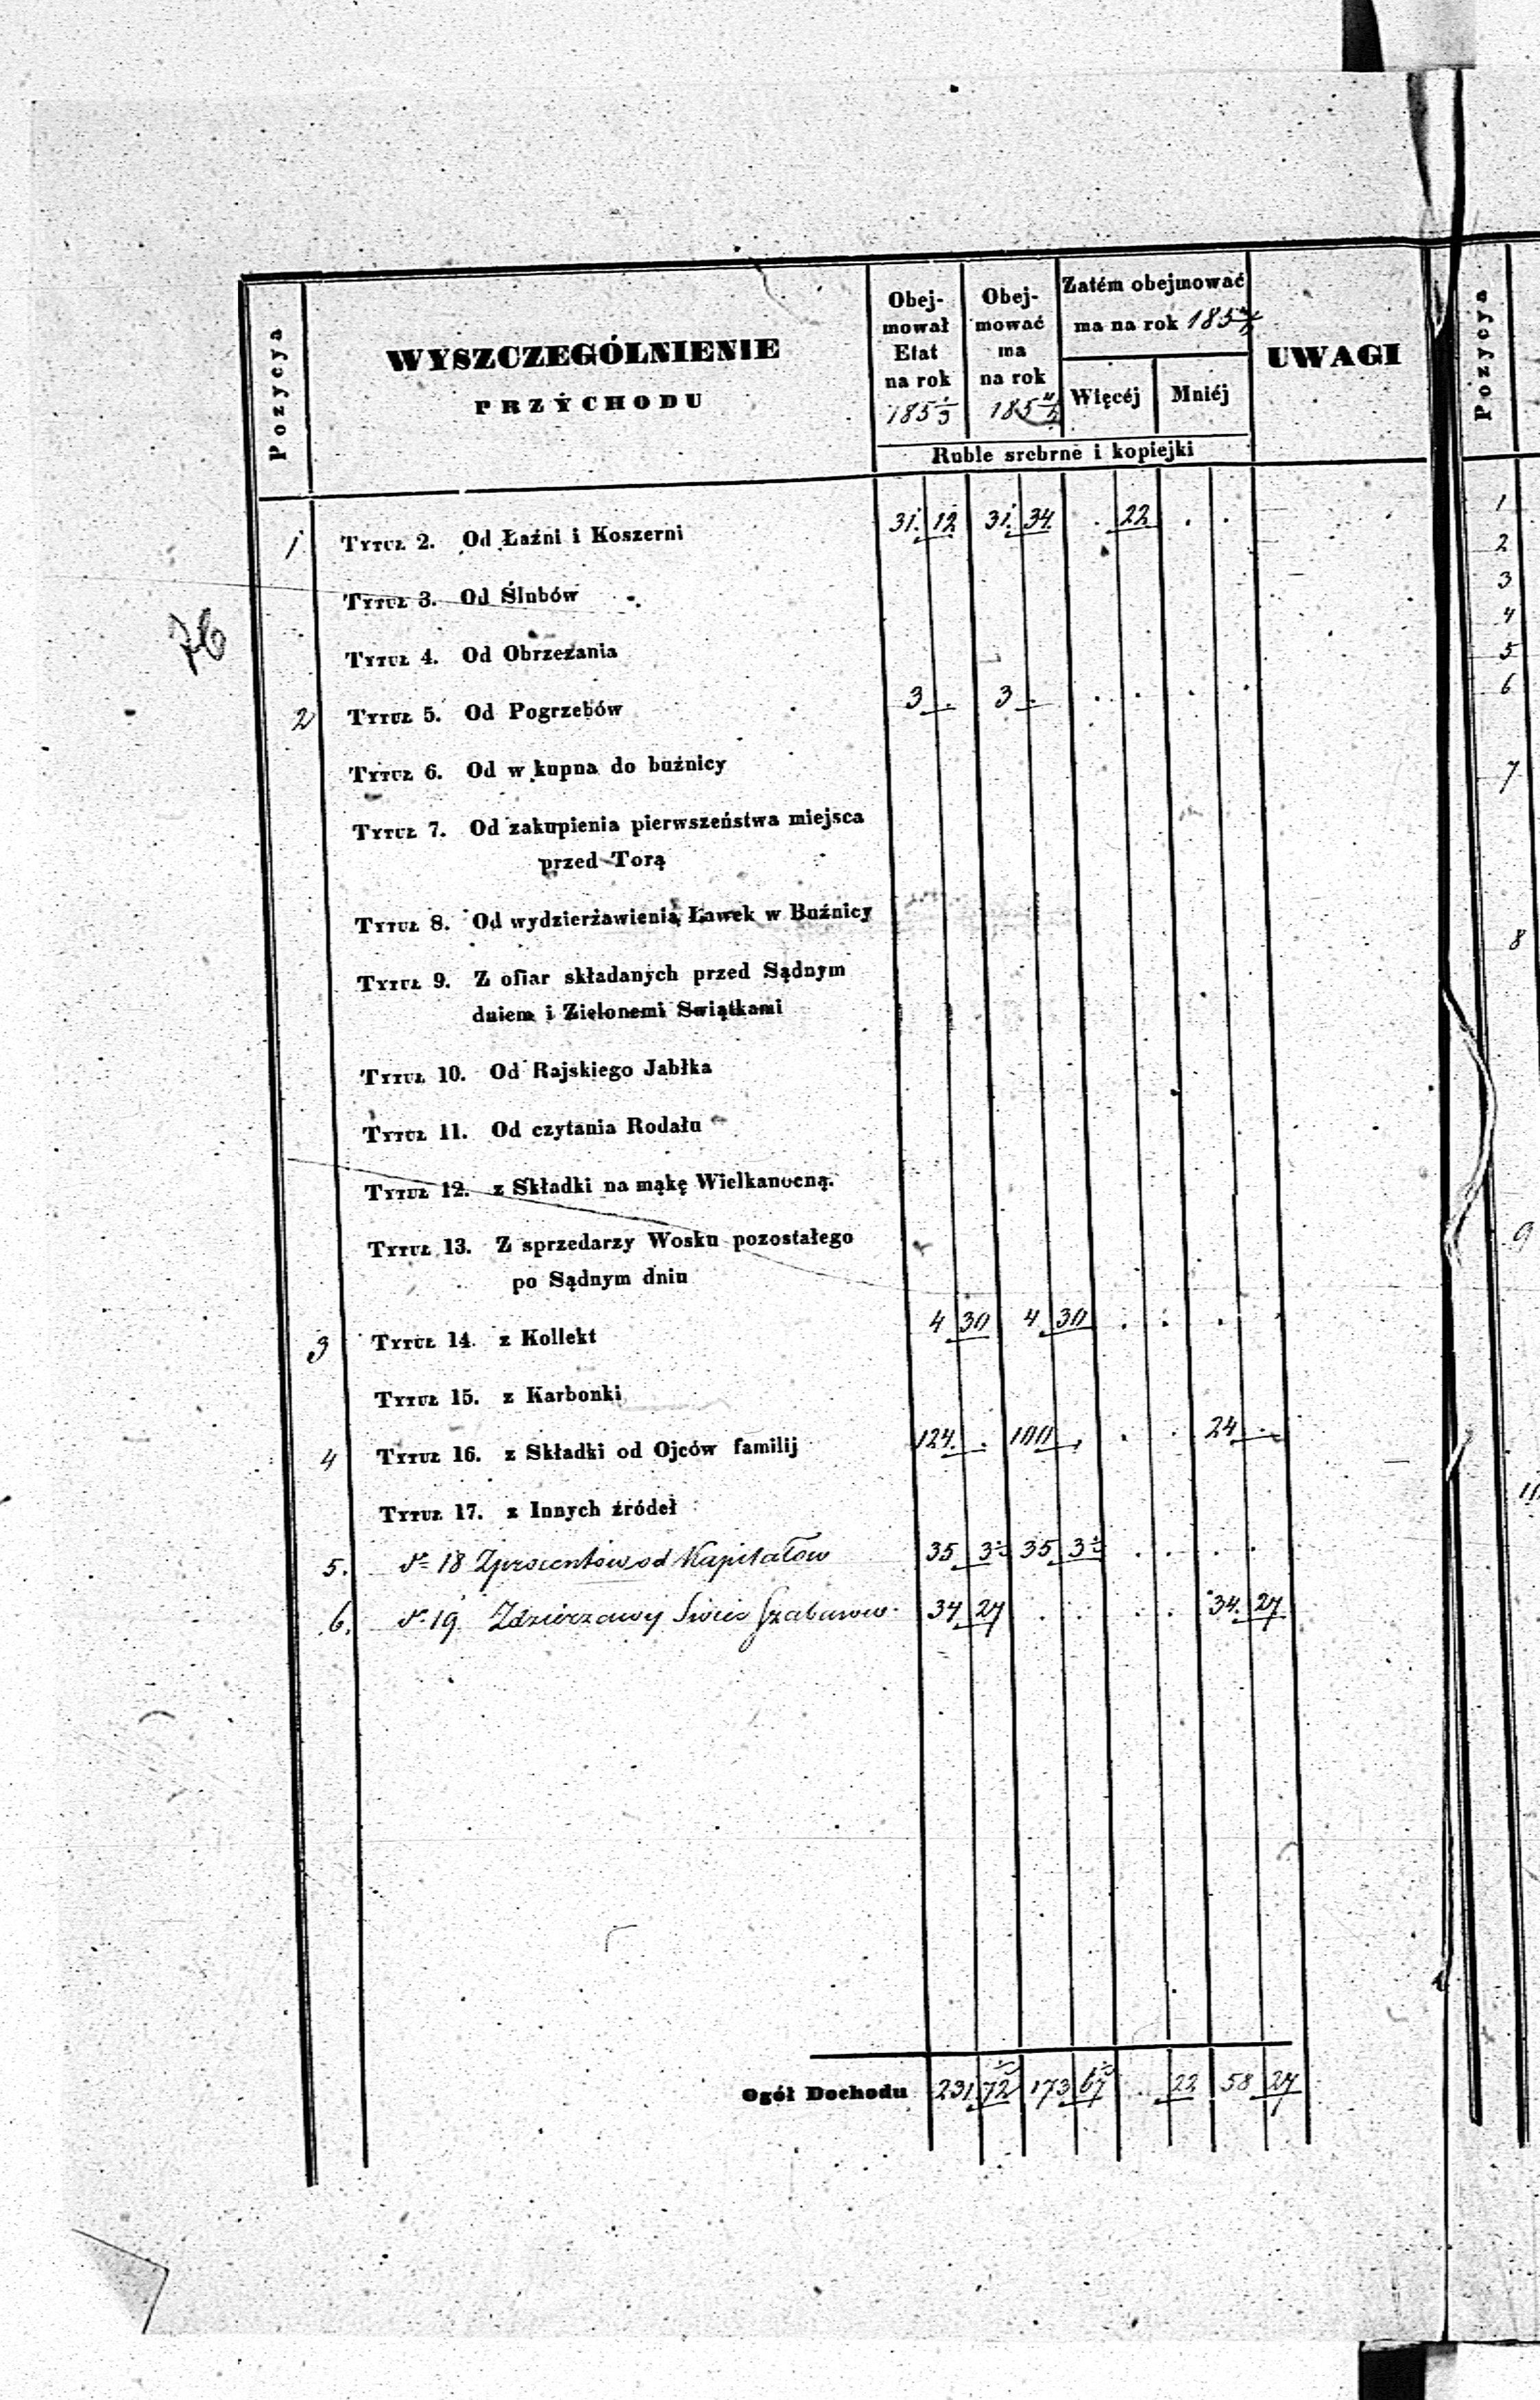 76
Pozycya
WYSZCZEGÓLNIENIE
PRZYCHODU
Obej-
mował
Etat
na rok
185 1/3
Obej-
mować
ma
na rok
185
Zatém obejmować
ma na rok 185
Więcéj Mniéj
Ruble srebrne i kopiejki
UWAGI
1 Tytuł 2. Od Łaźni i Koszerni 31. 12 31. 34 . 22 . .
Tytuł 3. Od Ślubów
Tytuł 4. Od Obrzezania
2 Tytuł 5. Od Pogrzebów 3 . 3 . . . . .
Tytuł 6. Od wkupna do buźnicy
Tytuł 7. Od zakupienia pierwszeństwa miejsca
przed Torą
Tytuł 8. Od wydzierżawienia Ławek w Buźnicy
Tytuł 9. Z ofiar składanych przed Sądnym
dniem i Zielonemi Swiątkami
Tytuł 10. Od Rajskiego Jabłka
Tytuł 11. Od czytania Rodału
Tytuł 12. z Składki na mąkę Wielkanocną.
Tytuł 13. Z sprzedarzy Wosku pozostałego
po Sądnym dniu
3 Tytuł 14. z Kollekt 4 30 4 30 . . . .
Tytuł 15. z Karbonki
4 Tytuł 16. z Składki od Ojców familij 124. . 100 . . . 24 .
Tytuł 17. z Innych źródeł
5. 18 Z procentów od Kapitałów 35 3 35 3 . . . .
6. 19 Z dzierzawy Swiec Szabasow. 34 27 . . . . 34. 27
Ogół Dochodu 231 72 173 67 . 22 58 27
Pozycya
1
2
3
4
5
6
7
8
9